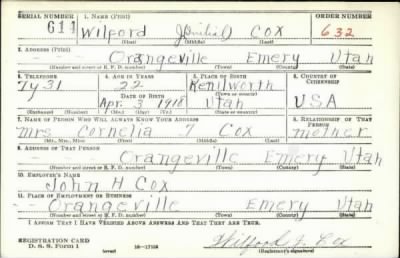 SERIAL NUMBER 1. NAME (Print) ORDER NUMBER
614 Wilford J(Initial) Cox 632
(First) (Middle) (Last)
2. ADDRESS (Print)
Orangeville Emery Utah
(Number and street or R. F. D. number) (Town) (County) (State)
3. TELEPHONE 4. AGE IN YEARS 5. PLACE OF BIRTH 6. COUNTRY OF CITIZENSHIP
7431 22 Kenilworth
DATE OF BIRTH (Town or county)
Apr. 3 1918 Utah USA
(Exchange) (Number) (Mo.) (Day) (Yr.) (State or country)
7. NAME OF PERSON WHO WILL ALWAYS KNOW YOUR ADDRESS 8. RELATIONSHIP OF THAT PERSON
Mrs Cornelia T Cox mother
(Mr., Mrs., Miss) (First) (Middle) (Last)
9. ADDRESS OF THAT PERSON
Orangeville Emery Utah
(Number and street or R. F. D. number) (Town) (County) (State)
10. EMPLOYER'S NAME
John H Cox
11. PLACE OF EMPLOYMENT OR BUSINESS
Orangeville Emery Utah
(Number and street or R. F. D. number) (Town) (County) (State)
I AFFIRM THAT I HAVE VERIFIED ABOVE ANSWERS AND THAT THEY ARE TRUE.
REGISTRATION CARD
D. S. S. Form 1 (over) 16-17105 Wilford J. Cox
(Registrant's signature)